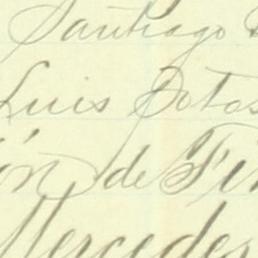 Santiago
Luis Botas
ón de Fi
Mercedes